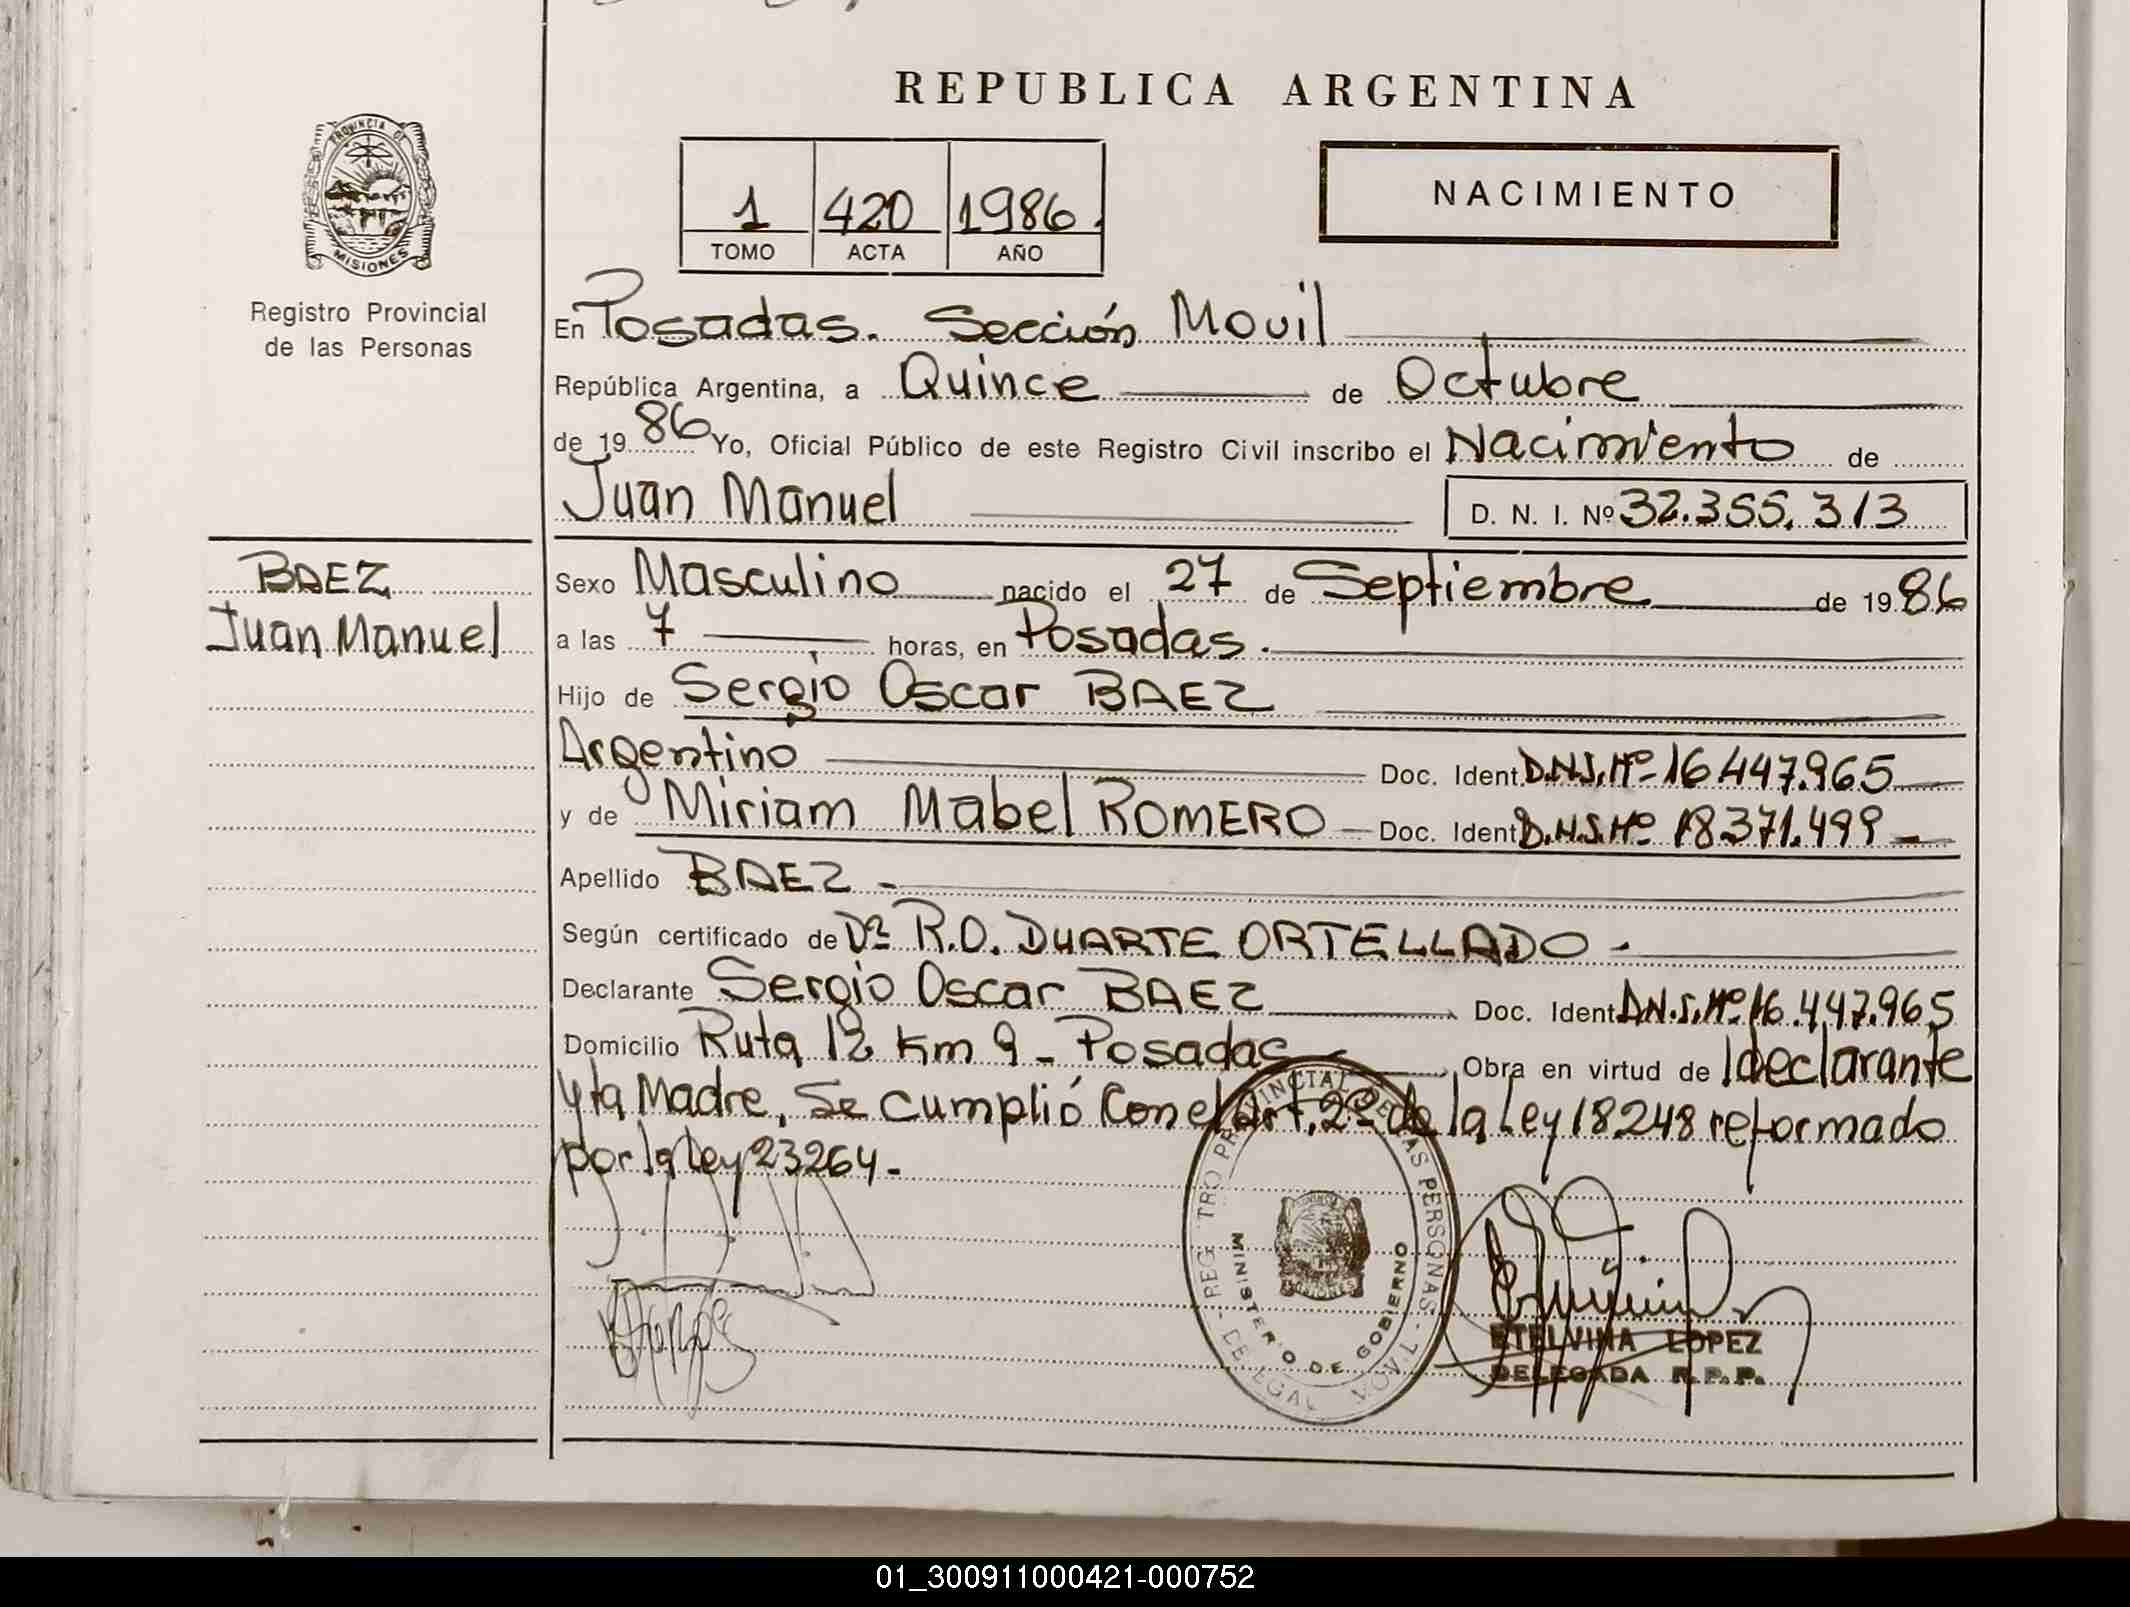 REPUBLICA ARGENTINA
PROVINCIA DE
MISIONES
Registro Provincial
de las Personas
1 420 1986.
TOMO ACTA AÑO
NACIMIENTO
En Posadas. Sección Movil
República Argentina, a Quince de Octubre
de 19 86 Yo, Oficial Público de este Registro Civil inscribo el Nacimiento de
Juan Manuel D. N. I. Nº 32.355.313
BAEZ
Juan Manuel
Sexo Masculino nacido el 27 de Septiembre de 19 86
a las 7 horas, en Posadas.
Hijo de Sergio Oscar BAEZ
Argentino Doc. Ident. D.N.I. Nº 16.447.965
y de Miriam Mabel ROMERO Doc. Ident. D.N.I. Nº 18.371.499 -
Apellido BAEZ -
Según certificado de Dr R.O. DUARTE ORTELLADO -
Declarante Sergio Oscar BAEZ Doc. Ident. D.N.I. Nº 16.447.965
Domicilio Ruta 12 Km 9 - Posadas Obra en virtud de l declarante
y la Madre, Se cumplió con el art. 2º de la Ley 18248 reformado
por la Ley 23264 -
MINISTERIO DE GOBIERNO
ETELVINA LOPEZ
DELEGADA R.P.P.
01_300911000421-000752